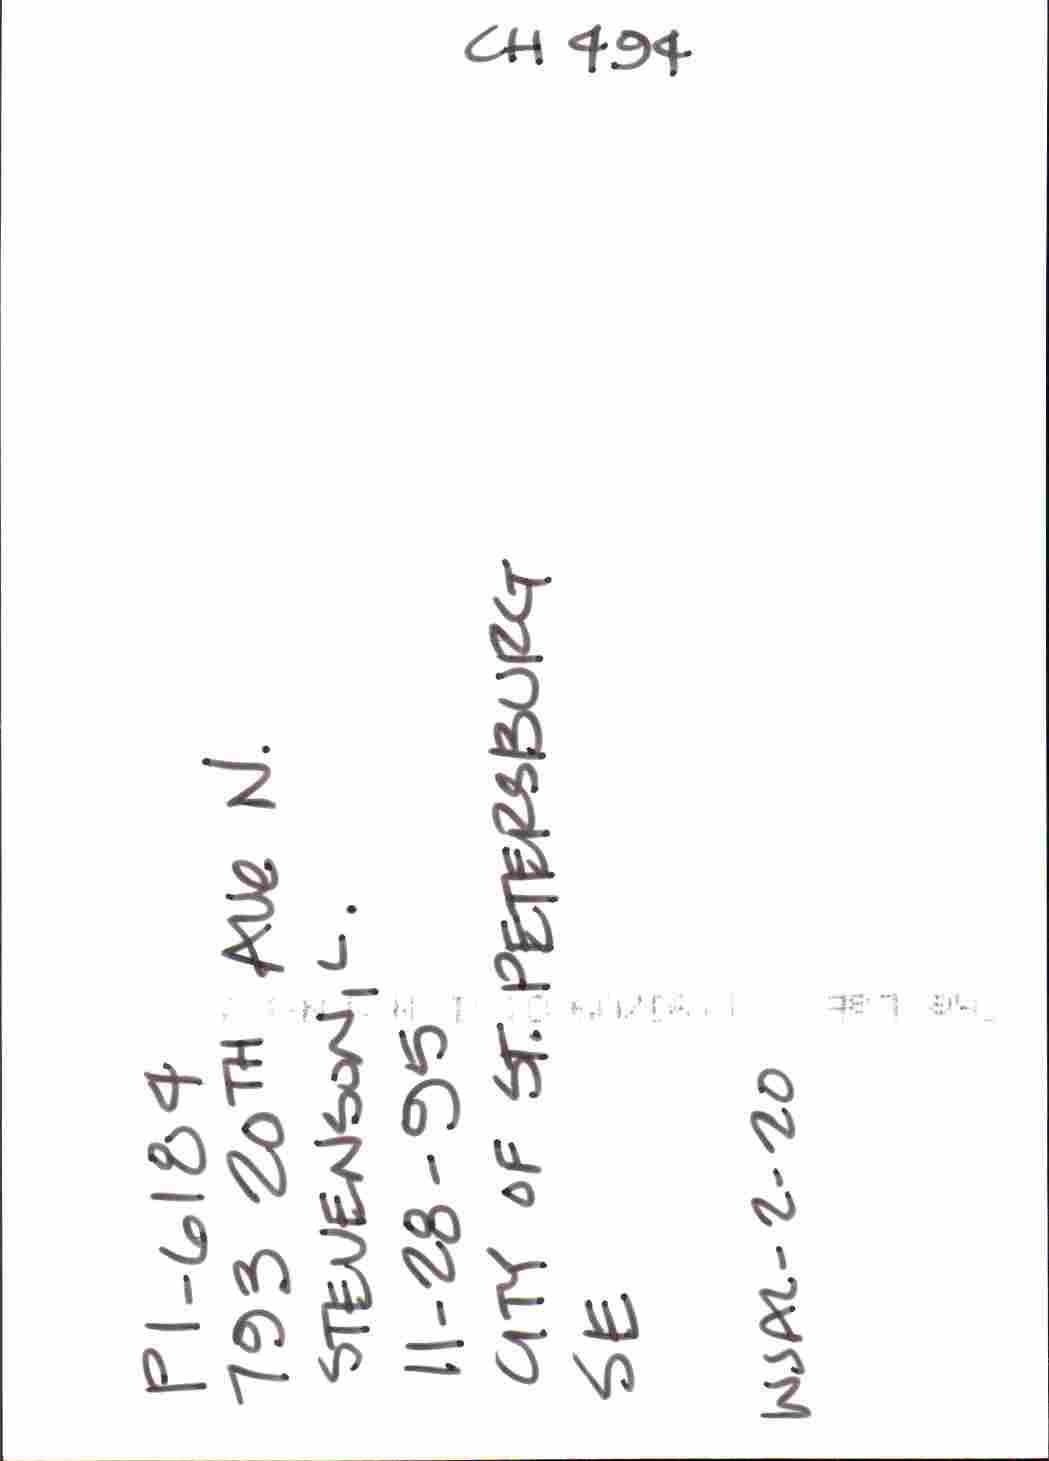 CH 494
PI-6184
793 20TH AVE N.
STEVENSON, L.
11-28-95
CITY OF ST. PETERSBURG
SE